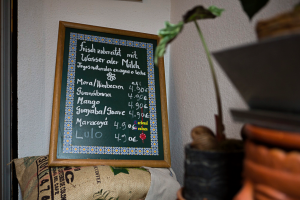 Frisch zubereitet mit
Wasser oder Milch
Jugos naturales en agua o leche
Mora/Himbeeren 4.90€
Guanábana 4.90€
Mango 4.90€
Guayaba/Guave 4.90€
Maracuyá 4.90€
Lulo 4.90€